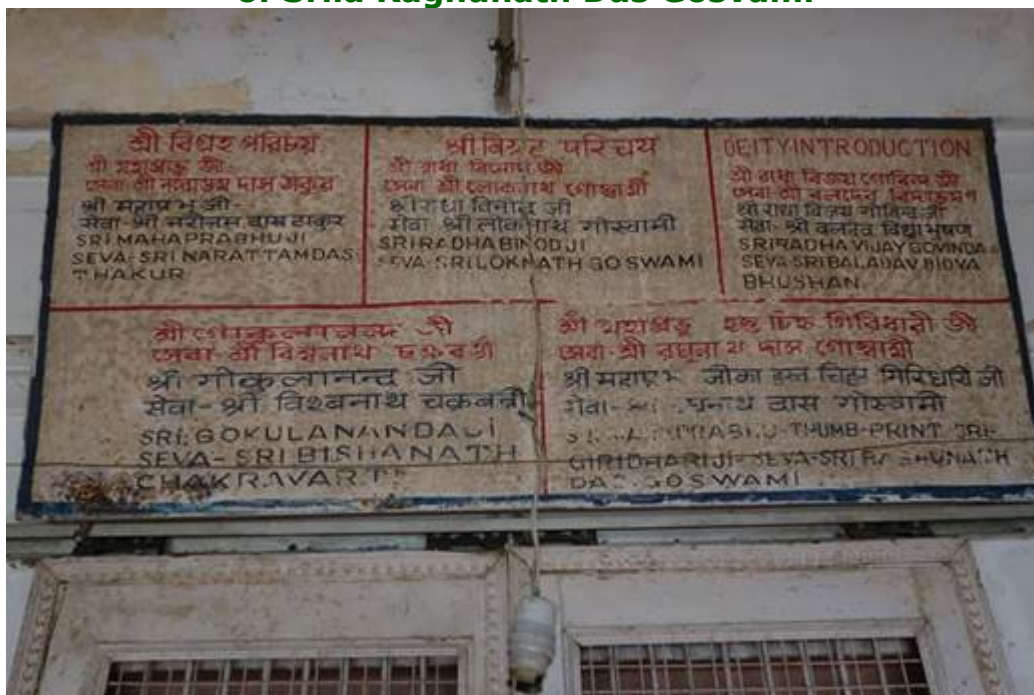 of Srila Raghunath Das Gosvami.
শ্রী বিগ্রহ পরিচয়
শ্রী মহাপ্রভু জী-
সেবা-শ্রী নরোত্তম দাস ঠাকুর
श्री महाप्रभु जी-
सेवा-श्री नरोत्तम दास ठाकुर
SRI MAHAPRABHUJI
SEVA-SRI NARATTAMDAS
THAKUR
श्री विग्रह परिचय
শ্রী রাধা বিনোদ জী
সেবা শ্রী লোকনাথ গোস্বামী
श्री राधा विनोद जी
सेवा श्री लोकनाथ गोस्वामी
SRI RADHA BINODJI
SEVA-SRILOKNATH GOSWAMI
DEITY INTRODUCTION
শ্রী রাধা বিজয় গোবিন্দ জী
সেবা-শ্রী বলদেব বিদ্যাভূষণ
श्री राधा विजय गोविन्द जी
सेवा-श्री बलदेव विद्याभूषण
SRIRADHA VIJAY GOVINDA
SEVA-SRI BALADAV BIDYA
BHUSHAN
শ্রী গোকুলানন্দ জী
সেবা-শ্রী বিশ্বনাথ চক্রবর্ত্তী
श्री गोकुलानन्द जी
सेवा-श्री विश्बनाथ चक्रबर्त्री
SRI: GOKULANANDAJI
SEVA-SRI BISHANATH
CHAKRAVART
শ্রী মহাপ্রভু হস্ত চিহ্ন গিরিধারী জী
সেবা-শ্রী রঘুনাথ দাস গোস্বামী
श्री महाप्रभु जीका हस्त चिह्न गिरिधारी जी
सेवा-श्री दास गोस्वामी
THUMB-PRINT SRI-
GIRIDHARIJI-SEVA-SRI RAGHUNATH
DAS GOSWAMI